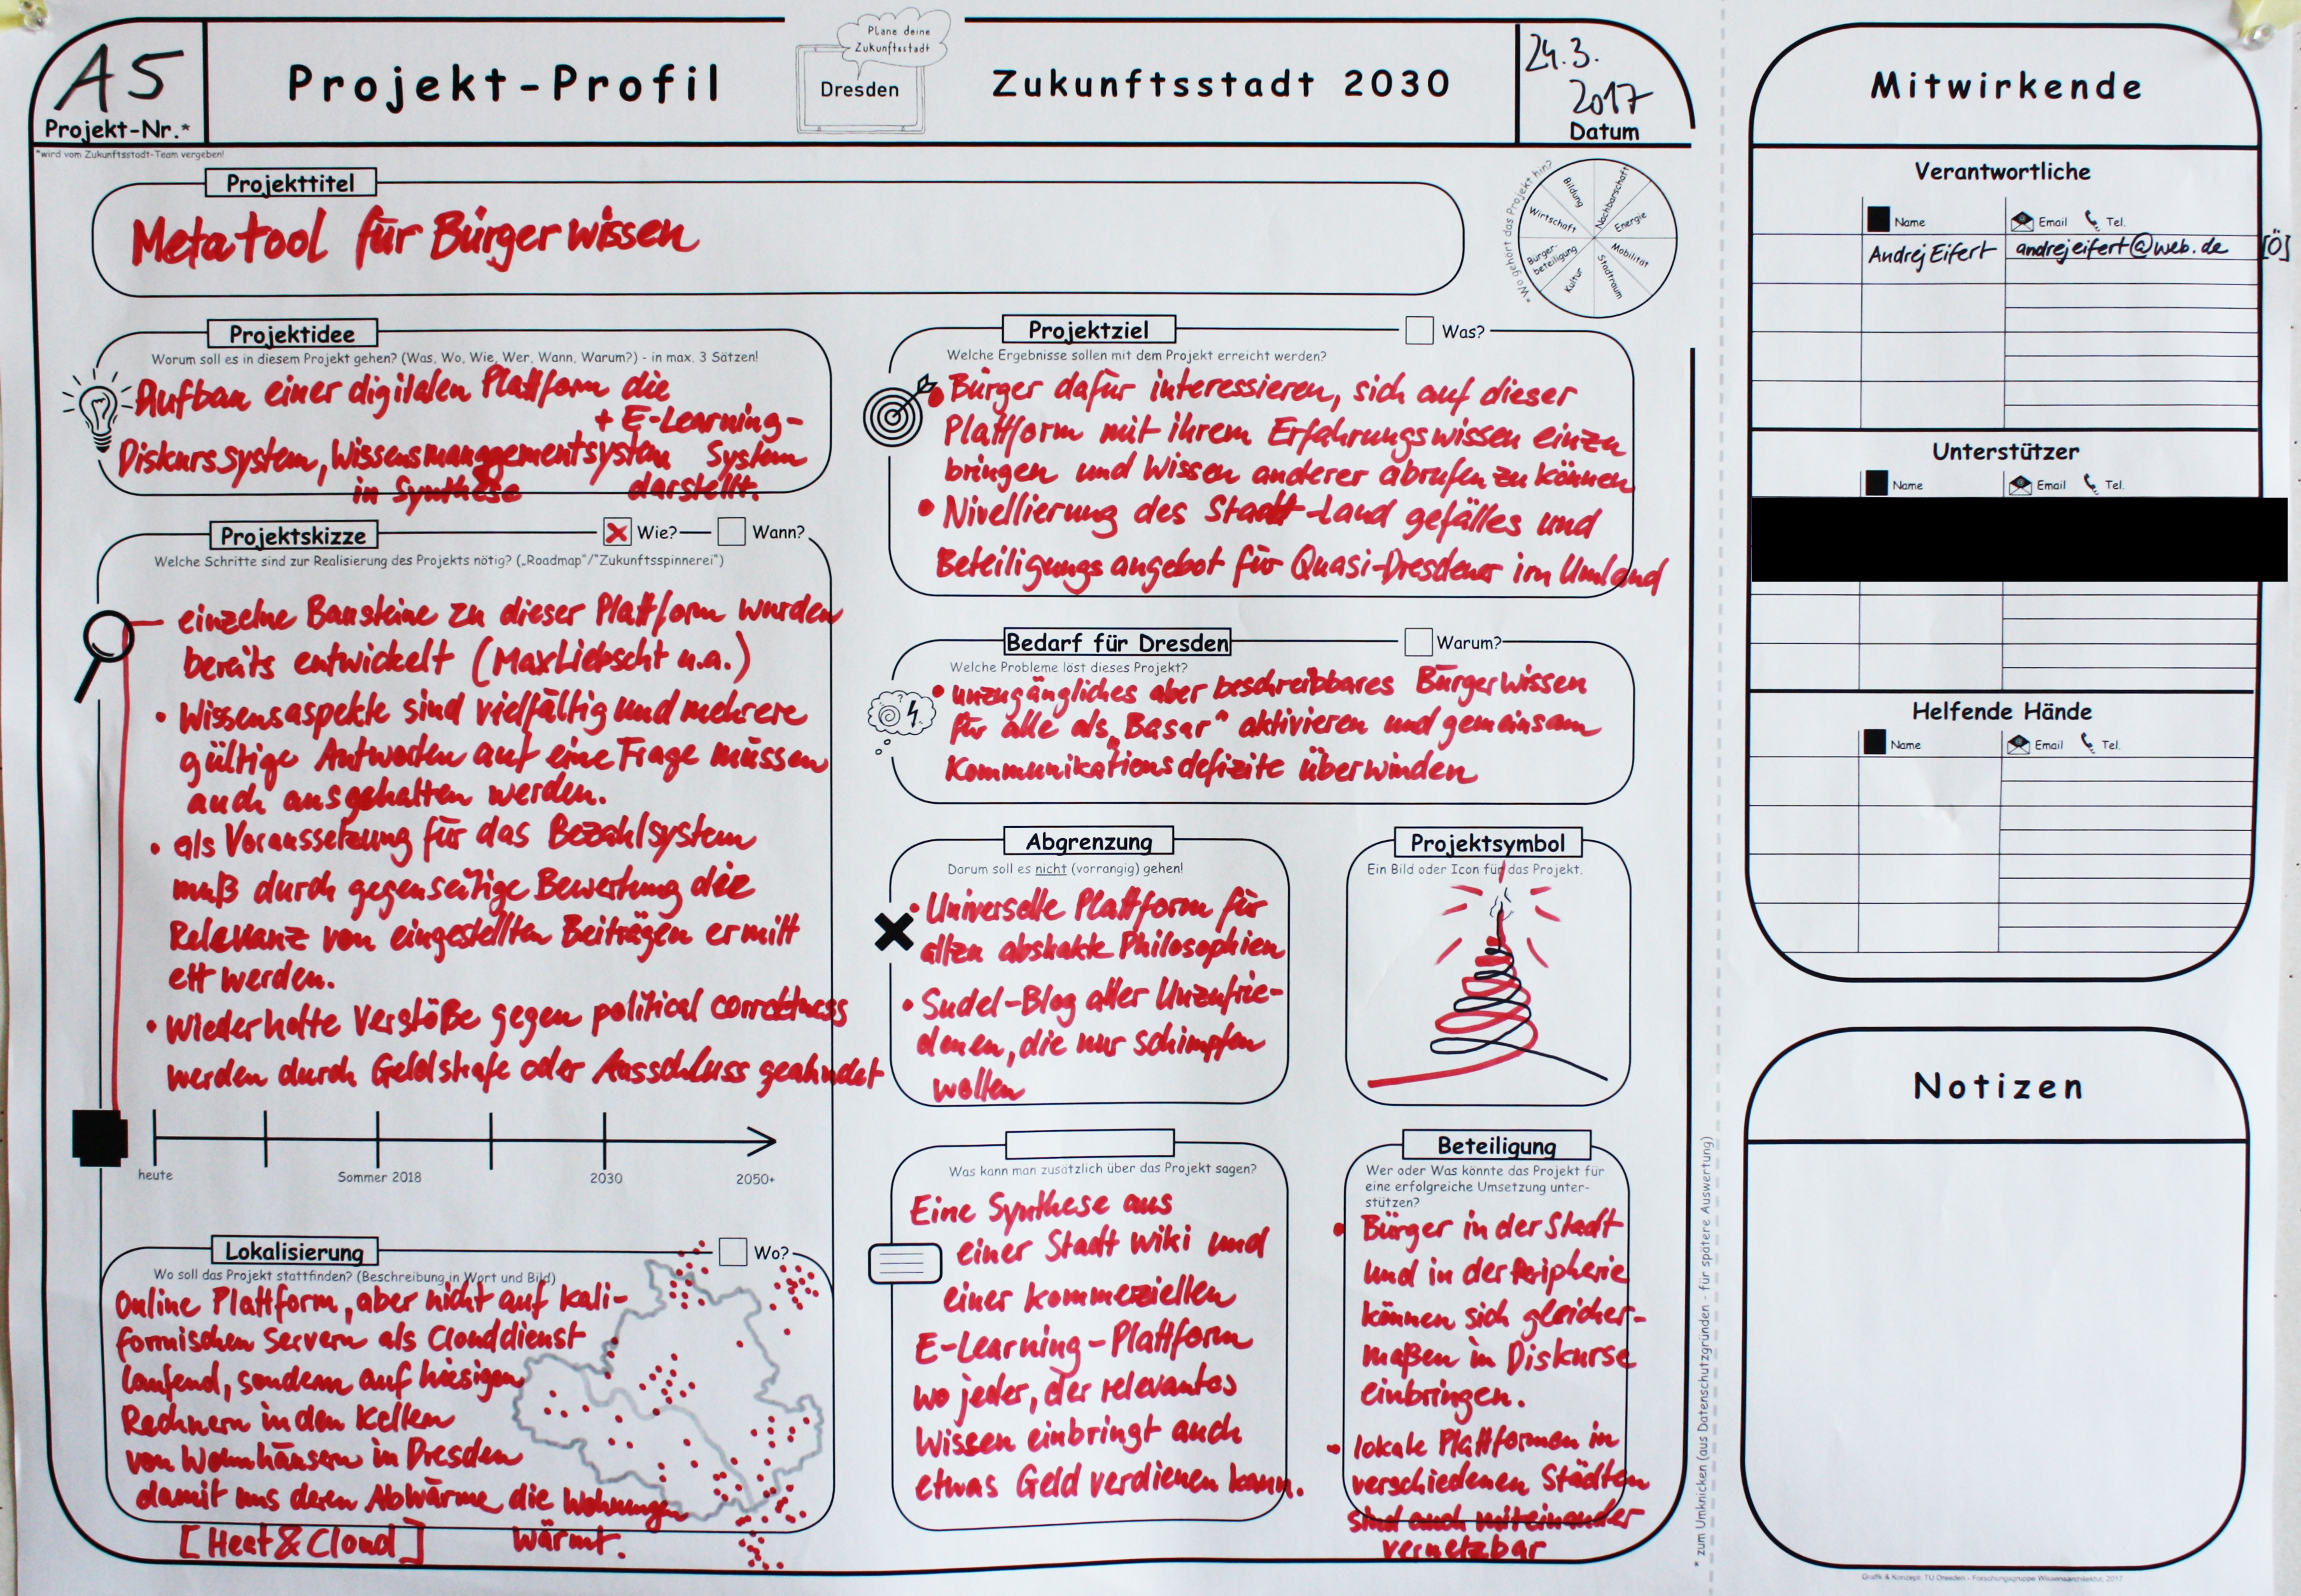 A5
Projekt-Nr.*
*wird vom Zukunftsstadt-Team vergeben!
Projekt-Profil
Plane deine
Zukunftsstadt
Dresden
Zukunftsstadt 2030
24.3.
2017
Datum
Projekttitel
Metatool für Bürgerwissen
* Wo gehört das Projekt hin?
Bildung
Nachbarschaft
Wirtschaft
Energie
Bürger-
beteiligung
Mobilität
Kultur
Stadtraum
Projektidee
Worum soll es in diesem Projekt gehen? (Was, Wo, Wie, Wer, Wann, Warum?) - in max. 3 Sätzen!
Aufbau einer digitalen Plattform die
+ E-Learning-
Diskurssystem, Wissensmanagementsystem System
in Synthese darstellt.
Projektskizze
Wie?
Wann?
Welche Schritte sind zur Realisierung des Projekts nötig? („Roadmap"/"Zukunftsspinnerei")
einzelne Bausteine zu dieser Plattform wurden
bereits entwickelt (Max Liebscht u.a.)
• Wissensaspekte sind vielfältig und mehrere
gültige Antworten auf eine Frage müssen
auch ausgehalten werden.
• als Voraussetzung für das Bezahlsystem
muß durch gegenseitige Bewertung die
Relevanz von eingestellten Beiträgen ermitt
elt werden.
• Wiederholte Verstöße gegen political correctness
werden durch Geldstrafe oder Ausschluss geahndet
heute
Sommer 2018
2030
2050+
Lokalisierung
Wo?
Wo soll das Projekt stattfinden? (Beschreibung in Wort und Bild)
Online Plattform, aber nicht auf kali-
fornischen Servern als Clouddienst
laufend, sondern auf hiesigen
Rechnern in den Kellern
von Wohnhäusern in Dresden
damit uns deren Abwärme die Wohnungen
[Heat&Cloud] wärmt.
Projektziel
Was?
Welche Ergebnisse sollen mit dem Projekt erreicht werden?
• Bürger dafür interessieren, sich auf dieser
Plattform mit ihrem Erfahrungswissen einzu
bringen und Wissen anderer abrufen zu können
• Nivellierung des Stadt-Land gefälles und
Beteiligungsangebot für Quasi-Dresdener im Umland
Bedarf für Dresden
Warum?
Welche Probleme löst dieses Projekt?
• unzugängliches aber beschreibbares Bürgerwissen
für alle als „Basar" aktivieren und gemeinsam
Kommunikationsdefizite überwinden
Abgrenzung
Darum soll es nicht (vorrangig) gehen!
• Universelle Plattform für
allzu abstrakte Philosophien
• Sudel-Blog aller Unzufrie-
denen, die nur schimpfen
wollen
Projektsymbol
Ein Bild oder Icon für das Projekt.
Was kann man zusätzlich über das Projekt sagen?
Eine Synthese aus
einer Stadt wiki und
einer kommerziellen
E-Learning-Plattform
wo jeder, der relevantes
Wissen einbringt auch
etwas Geld verdienen kann.
Beteiligung
Wer oder Was könnte das Projekt für
eine erfolgreiche Umsetzung unter-
stützen?
• Bürger in der Stadt
und in der Peripherie
können sich gleicher-
maßen in Diskurse
einbringen.
• lokale Plattformen in
verschiedenen Städten
sind auch miteinander
vernetzbar
* zum Umknicken (aus Datenschutzgründen - für spätere Auswertung)
Mitwirkende
Verantwortliche
Name Email Tel.
Andrej Eifert andrejeifert@web.de [Ö]
Unterstützer
Name Email Tel.
Helfende Hände
Name Email Tel.
Notizen
Grafik & Konzept: TU Dresden - Forschungsgruppe Wissensarchitektur, 2017